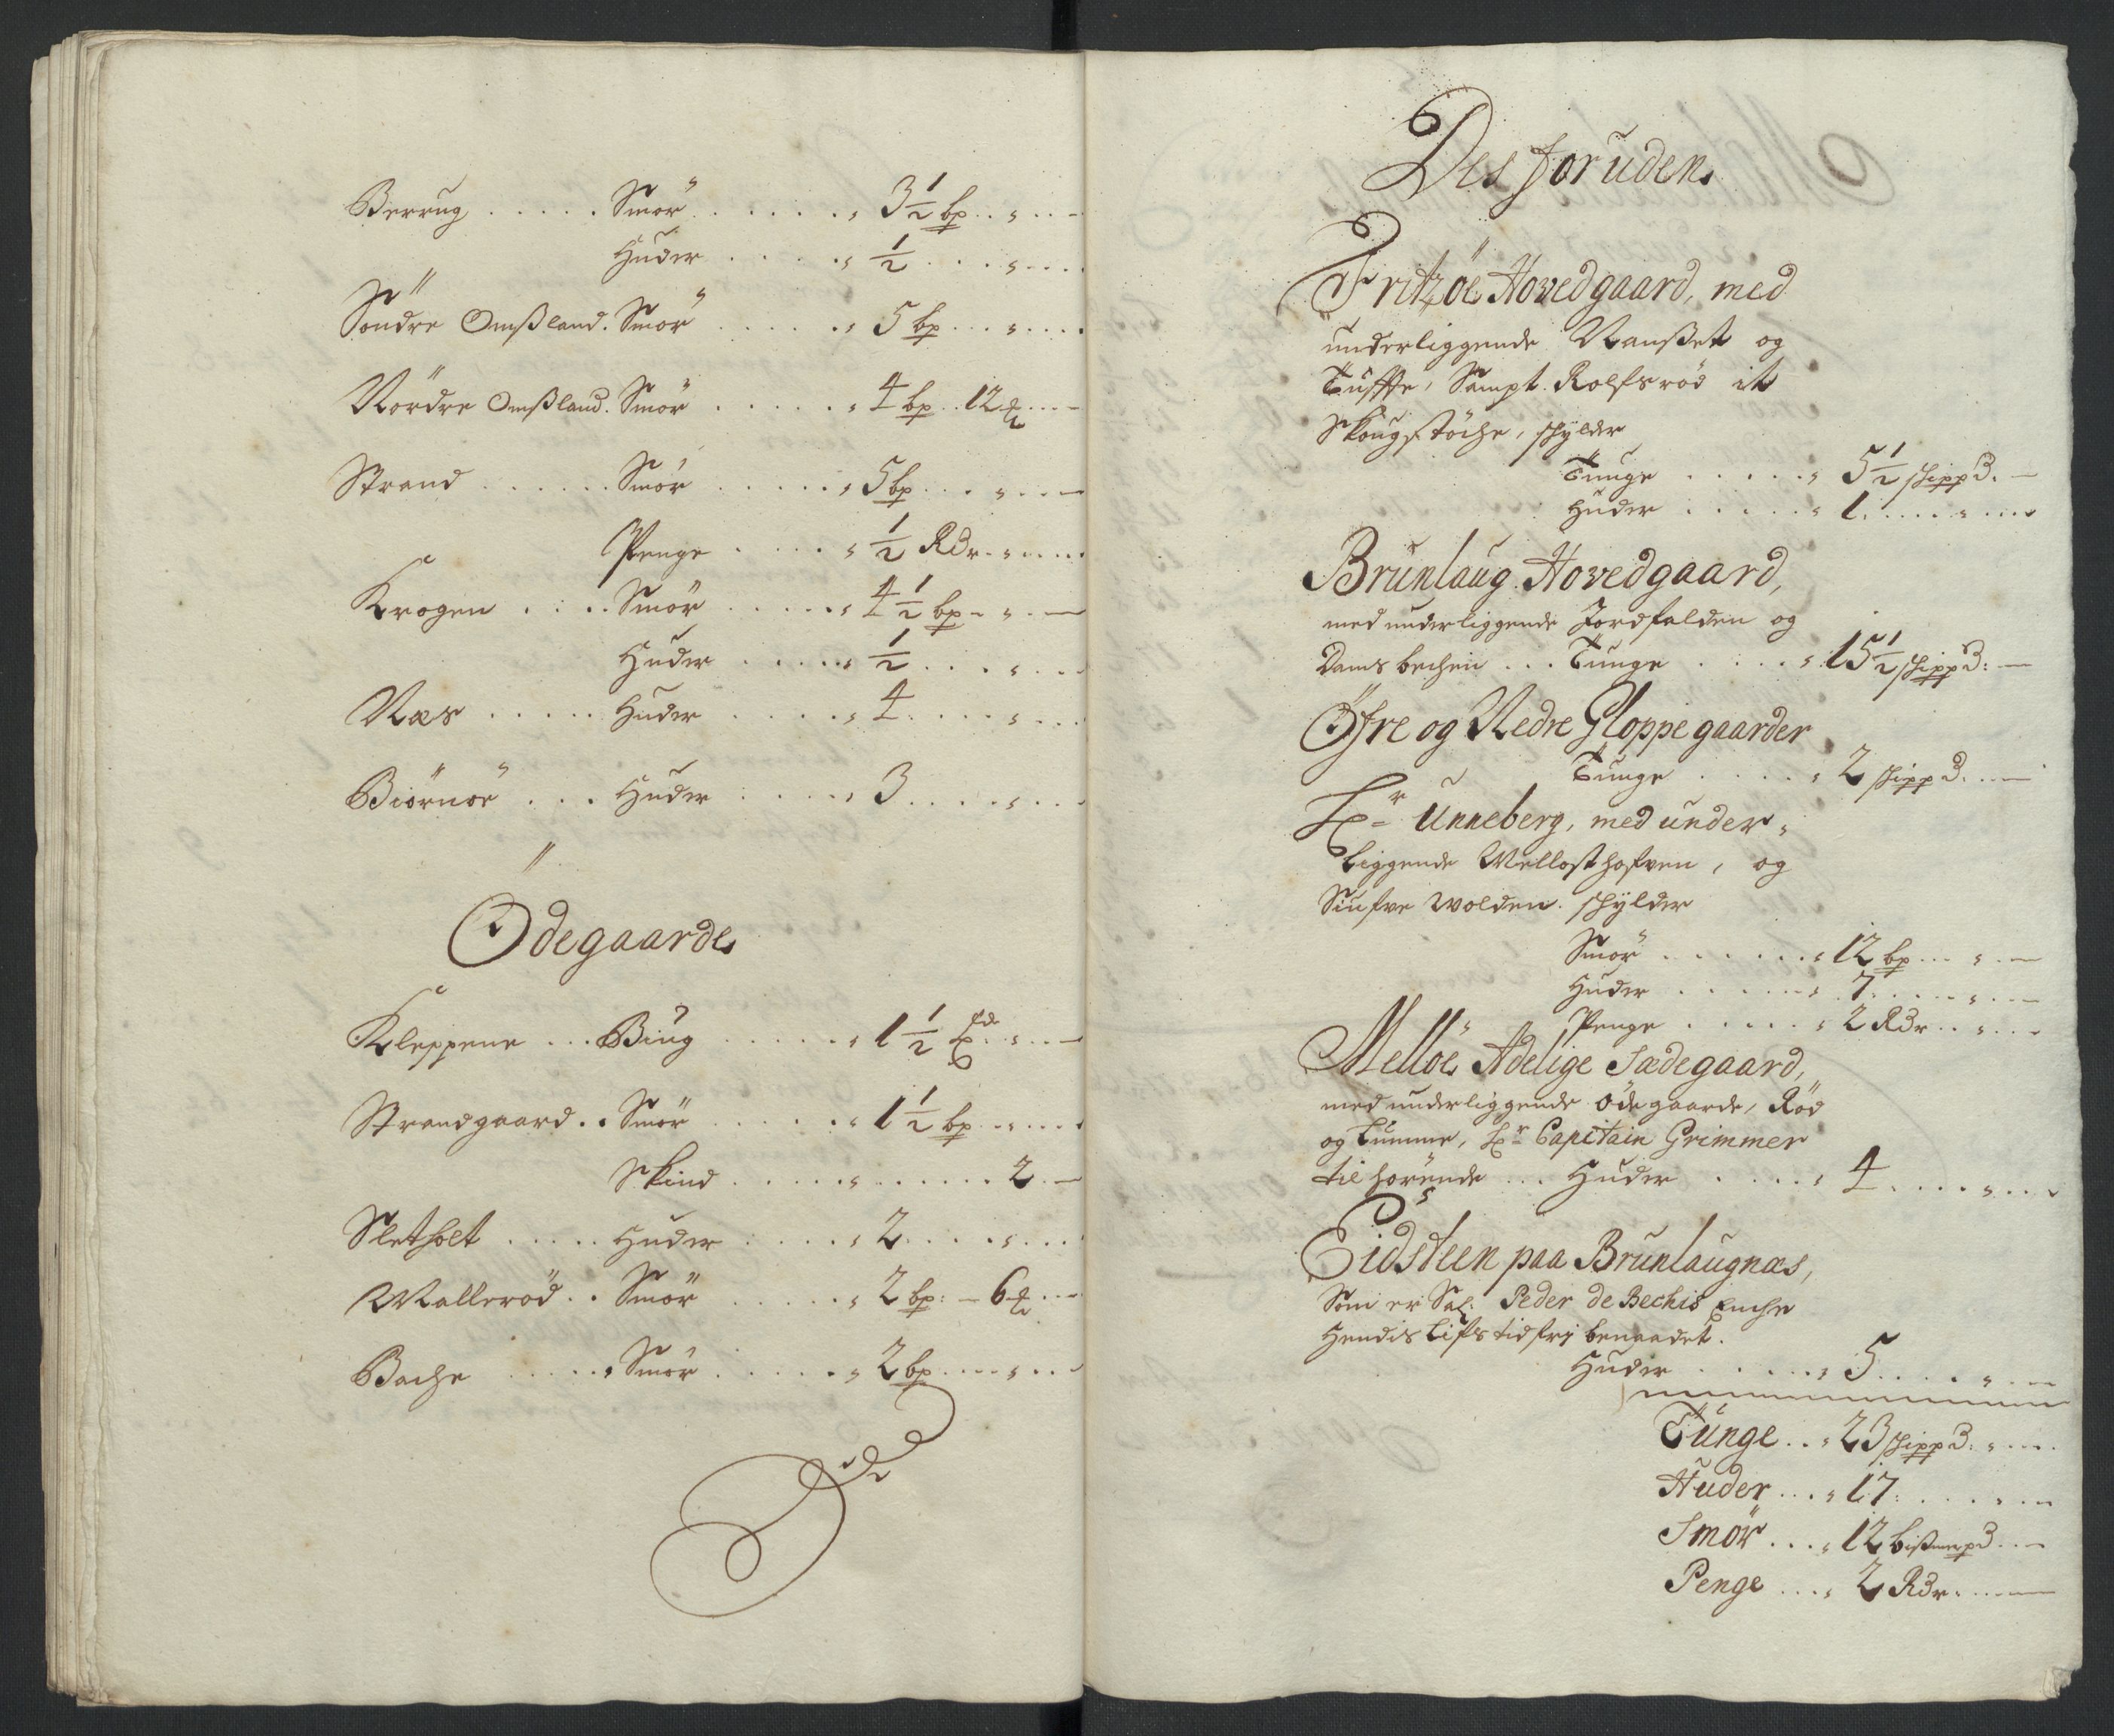 Berrug ..... Smör ...... 3½ bp
Huder .... ½
Söndre Omßland. Smör ..... 5 bp
Nördre Omßland. Smör ..... 4 bp .. 12
Strand ...... Smör ..... 5 bp
Penge .... ½ Rdr
Krogen .... Smör ..... 4½ bp
Huder ..... ½
Næs ..... Huder .... 4
Biörnöe ... Huder .... 3
Ödegaarde
Kleppene ... Biug ..... 1½
Strandgaard .. Smör ..... 1½ bp
Skind ..... 2
Sletholt ..... Huder .... 2
Walleröd .. Smör ..... 2 bp: – 6
Bache ..... Smör ..... 2 bp
Desforuden
Fritzöe Hovedgaard, med
underliggende Nanßet og
Sampt. Rolfsröd it
Skougstöche, schylder
Tunge ..... 5½ schippd
Huder ..... 1
Brunlaug Hovedgaard,
med underliggende Jordfalden og
Damsbechen ... Tunge .... 15½ schippd
Öfre og Nedre Gloppe gaarder
Tunge .... 2 schippd
Hr Unneberg, med under,
liggende Wellosthofven, og
Wolden. schylder
Smör ...... 12 bp
Huder ..... 7
Penge ..... 2 Rdr
Mellöe Adelige Sædegaard,
med underliggende Ödegaarde, Röd
og Tumme, Hr Capitain Grimmer
tilhörende ... Huder .... 4
Eidsteen paa Brunlaugnæs,
Som er Sal: Peder de Bechis Enche
Hendis Lifstid frj benaadet.
Huder .... 5
Tunge .. 23 schippd
Huder ... 17
Smör ... 12 bißmerpd
Penge ... 2 Rdr